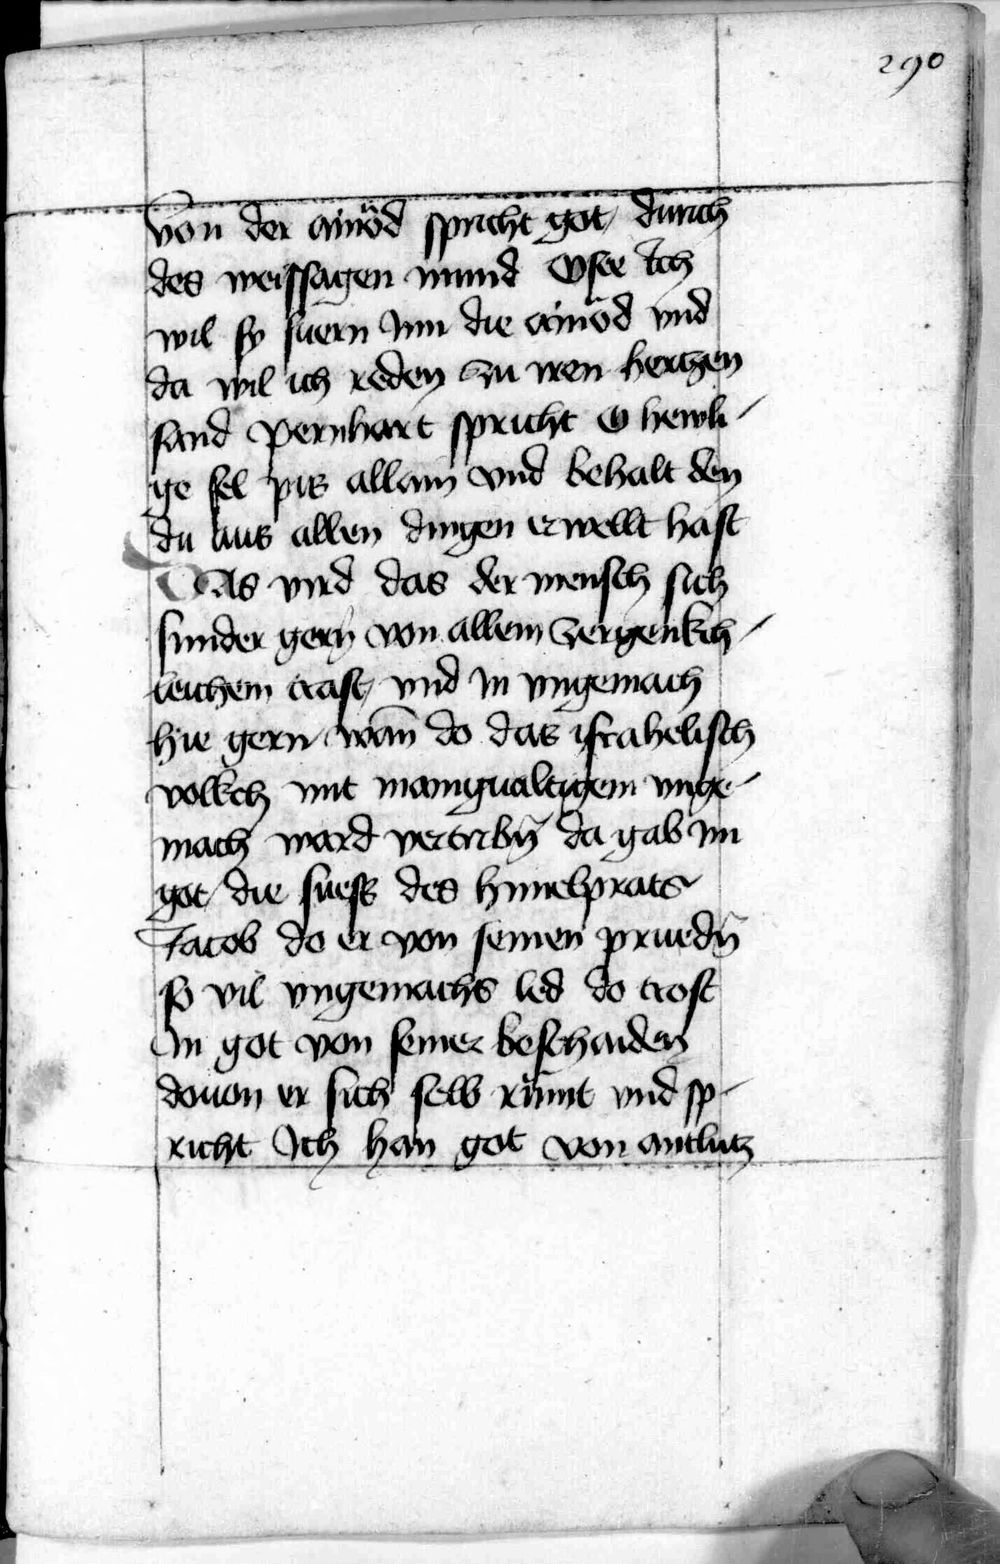 290
Von der ainöd spricht got durch
des weissagen mund Osee Ich
wil sy fuern Inn die ainöd vnd
da wil ich reden zu iren hertzen
sand Pernhart spricht O hewli-
ge sel pis allain vnd behalt den
du aus allen dingen erwellt hast
Das vird das der mensch sich
sunder gern von allem zergenkch-
leichem trast vnd in vngemach
hie gern wan̄ do das israhelisch
volkch mit manigualtigem vnge-
mach ward vertribn̄ da gab im
got die suess des himelprats
Jacob do er von seinen pruedn̄
so vil vngemachs led do trost
In got von seiner beschaiden
douon er sich selb rümt vnd sp-
richt Ich han got von antlutz